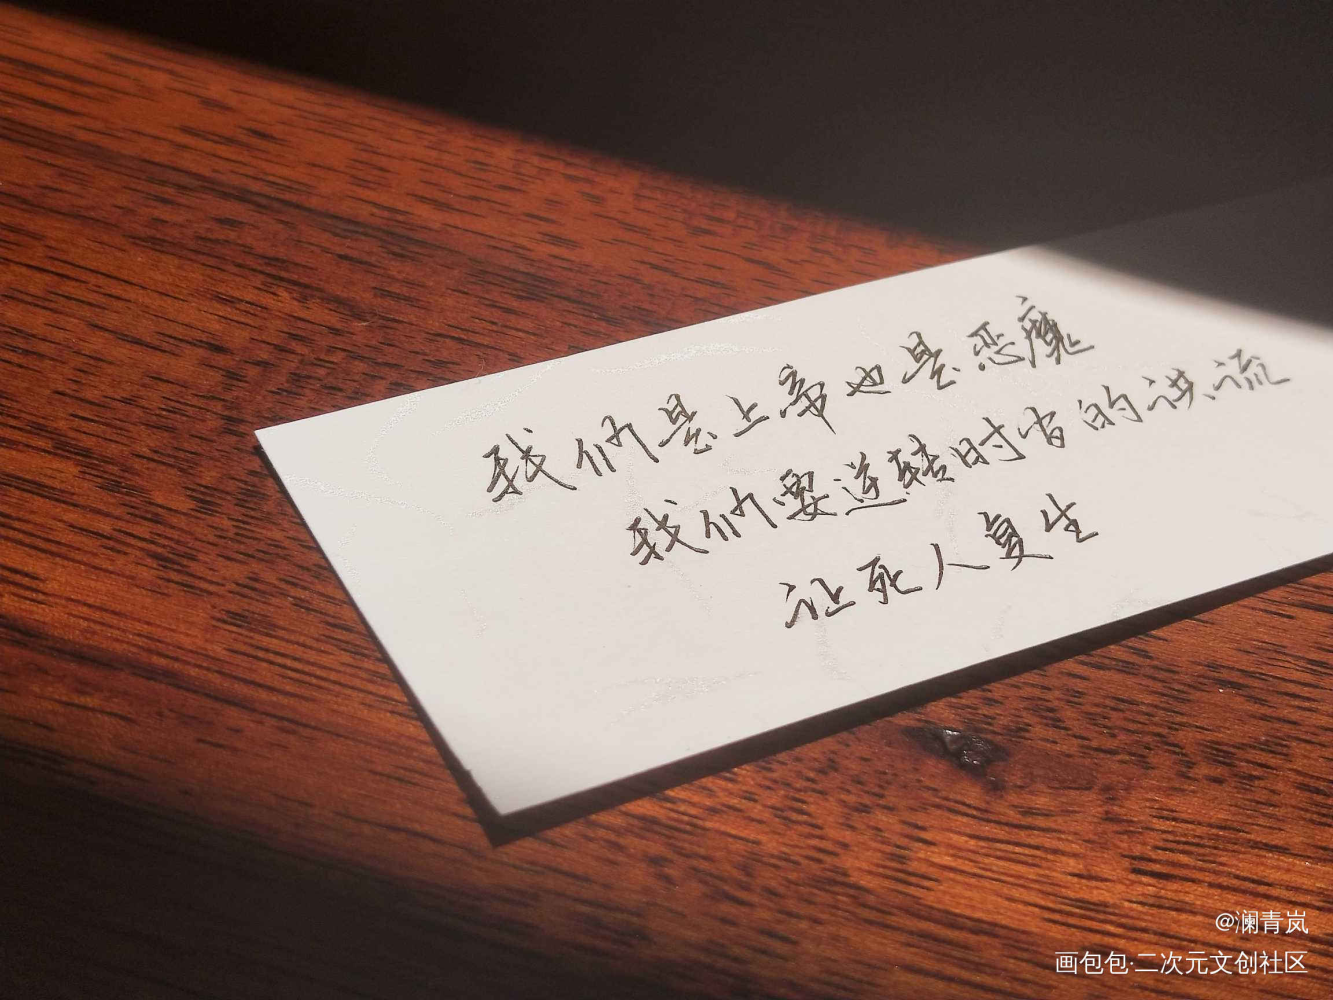 我们是上帝也是恶魔
我们要逆转时官的洪流
让死人复生
@澜青岚
画包包·二次元文创社区